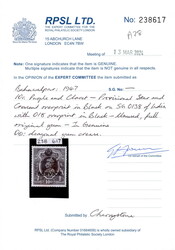 RPSL LTD.
EXPERT COMMITTEE FOR THE
ROYAL PHILATELIC SOCIETY LONDON
15 ABCHURCH LANE
LONDON EC4N 7BW
No: 238617
Meeting of
13 MAR 2024
Note: One signature indicates that the item is GENUINE.
Multiple signatures indicate that the item is NOT genuine in all respects.
In the OPINION of the EXPERT COMMITTEE the item submitted as
Bahawalpur: 1947 SG No:
10r. Purple and Claret - Provisional Star and
Crescent overprint in Black on SG O138 of India
with overprint in Black - Unused, full
original gum - Is Genuine
diagonal gum crease.
238 617
Submitted by
RPSL Ltd is a wholly owned subsidiary of the
Royal Philatelic Society London